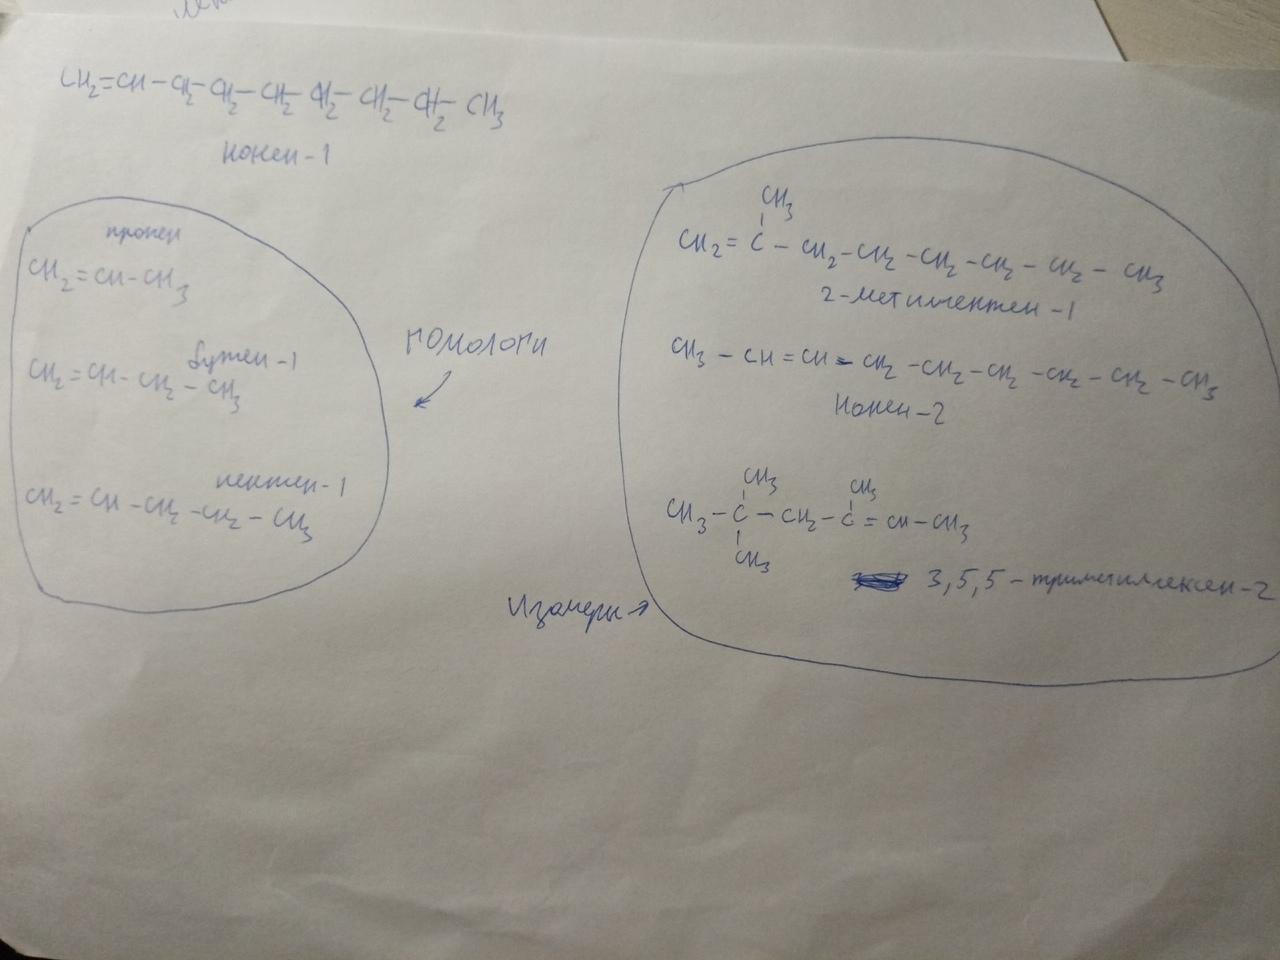 CH₂=CH-CH₂-CH₂-CH₂-CH₂-CH₂-CH₂-CH₃
нонен-1
пропен
CH₂=CH-CH₃
бутен-1
CH₂=CH-CH₂-CH₃
пентен-1
CH₂=CH-CH₂-CH₂-CH₃
гомологи
CH₃
CH₂=C-CH₂-CH₂-CH₂-CH₂-CH₂-CH₃
CH₃-CH=CH-CH₂-CH₂-CH₂-CH₂-CH₂-CH₃
нонен-2
CH₃ CH₃
CH₃-C-CH₂-C=CH-CH₃
CH₃
3,5,5-триметилгексен-2
Изомеры